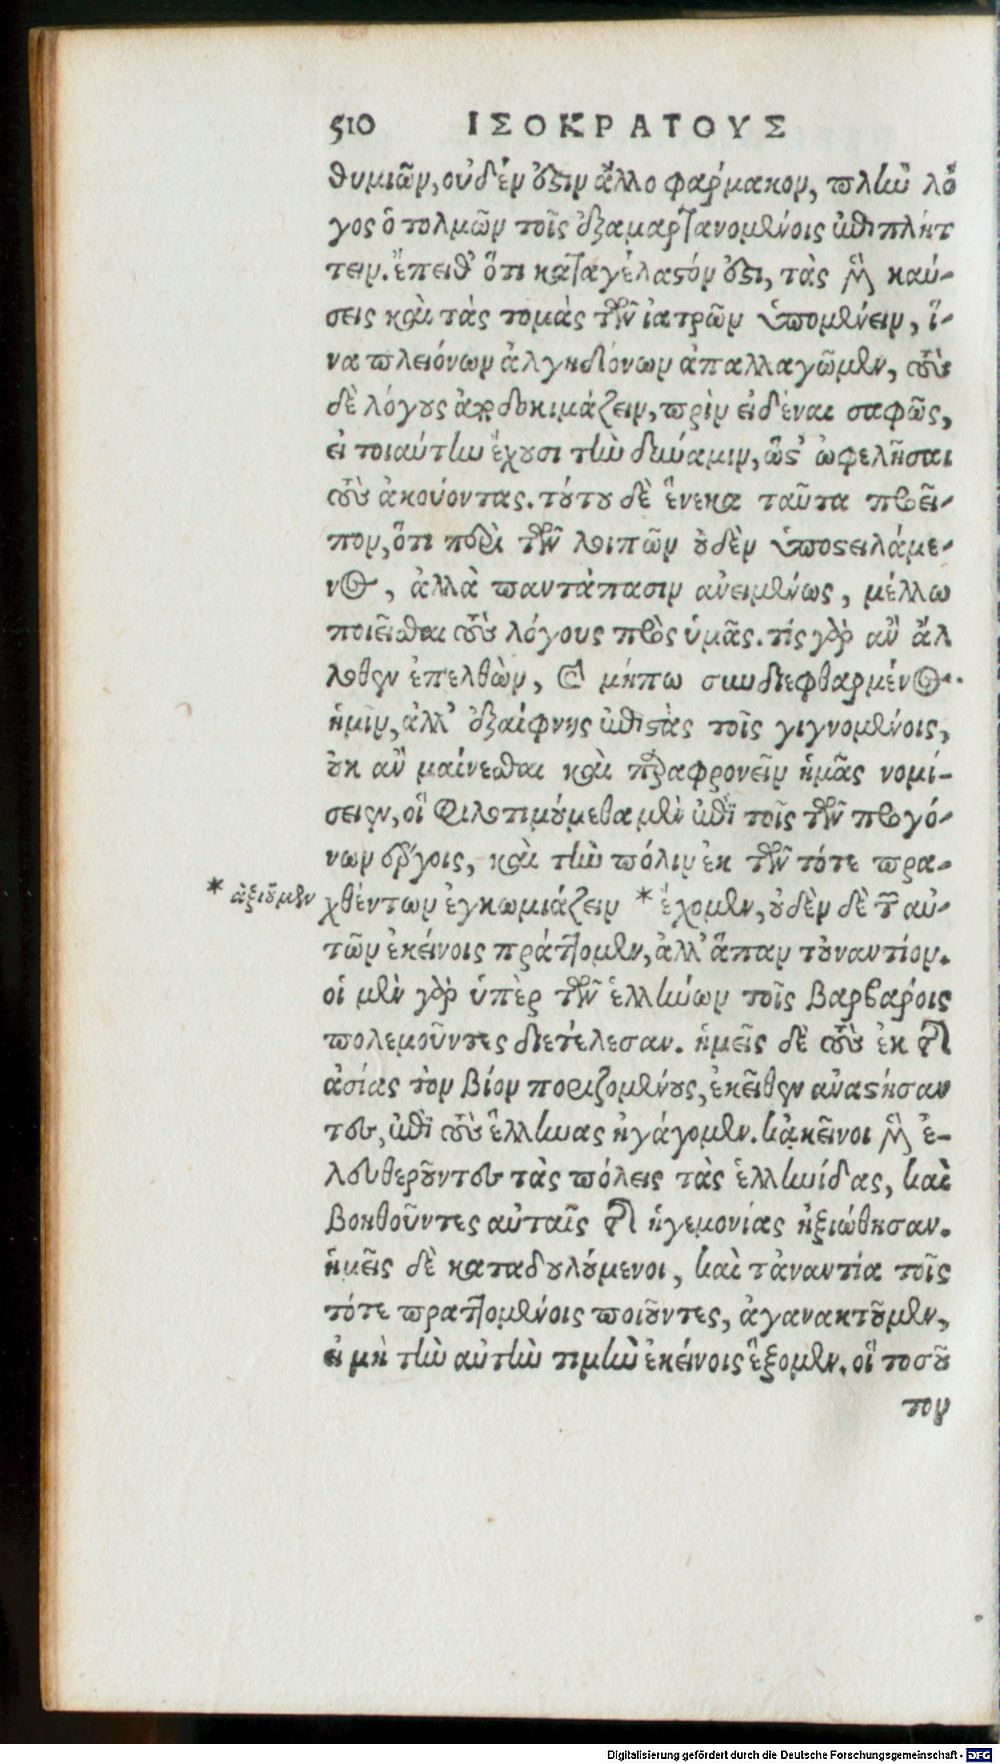 510 ΙΣΟΚΡΑΤΟΥΣ
θυμιῶν, οὐδέν ὄστιν ἄλλο φάρμακον, πλὴν λό
γος ὁ τολμῶν τοῖς ἐξαμαρτανομένοις ἐπιπλήτ
τειν. ἔπειθ’ ὅτι καταγέλαστόν ἐστι, τὰς μὲν καύ-
σεις καὶ τὰς τομὰς τῶν ἰατρῶν ὑπομένειν, ἵ-
να πλειόνων ἀλγηδόνων ἀπαλλαγῶμεν, τοὺς
δὲ λόγους ἀποδοκιμάζειν, πρὶν εἰδέναι σαφῶς,
εἰ τοιαύτην ἔχουσι τὴν δύναμιν, ὥστ’ ὠφελῆσαι
τοὺς ἀκούοντας. τούτου δὲ ἕνεκα ταῦτα προεῖ-
πον, ὅτι περὶ τῶν λοιπῶν οὐδὲν ὑποστειλάμε-
νος, ἀλλὰ παντάπασιν ἀνειμένως, μέλλω
ποιεῖσθαι τοὺς λόγους πρὸς ὑμᾶς. τίς γὰρ ἂν ἄλ
λοθεν ἐπελθὼν, καὶ μήπω συνδιεφθαρμένος
ἡμῖν, ἀλλ’ ἐξαίφνης ἐπιστὰς τοῖς γιγνομένοις,
οὐκ ἂν μαίνεσθαι καὶ παραφρονεῖν ἡμᾶς νομί-
σειεν, οἳ φιλοτιμούμεθα μὲν ἐπὶ τοῖς τῶν προγό-
νων ἔργοις, καὶ τὴν πόλιν ἐκ τῶν τότε πρα-
* ἀξιοῦμεν
χθέντων ἐγκωμιάζειν * ἔχομεν, οὐδὲν δὲ τῶν αὐ-
τῶν ἐκείνοις πράττομεν, ἀλλ’ ἅπαν τοὐναντίον.
οἱ μὲν γὰρ ὑπὲρ τῶν ἑλλήνων τοῖς βαρβάροις
πολεμοῦντες διετέλεσαν. ἡμεῖς δὲ τοὺς ἐκ τῆς
ἀσίας τὸν βίον ποριζομένους, ἐκεῖθεν ἀναστήσαν
τες, ἐπὶ τοὺς ἕλληνας ἠγάγομεν. κἀκεῖνοι μὲν ἐ-
λευθεροῦντες τὰς πόλεις τὰς ἑλληνίδας, καὶ
βοηθοῦντες αὐταῖς τῆς ἡγεμονίας ἠξιώθησαν.
ἡμεῖς δὲ καταδουλούμενοι, καὶ τἀναντία τοῖς
τότε πραττομένοις ποιοῦντες, ἀγανακτοῦμεν,
εἰ μὴ τὴν αὐτὴν τιμὴν ἐκείνοις ἕξομεν. οἳ τοσοῦ
τον
Digitalisierung gefördert durch die Deutsche Forschungsgemeinschaft - DFG